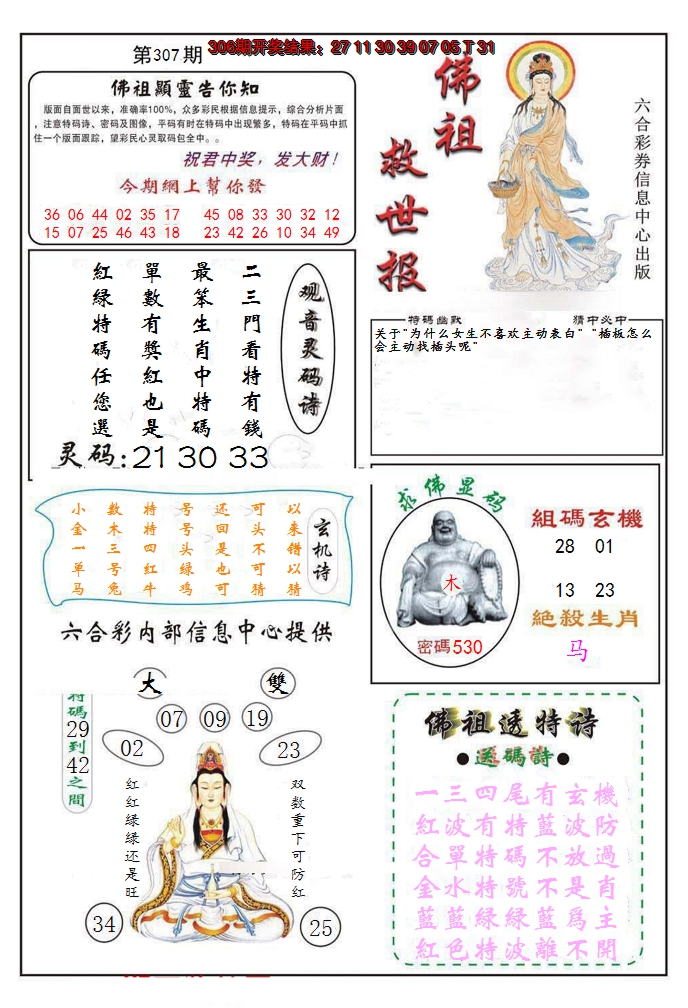 第307期
306期开奖结果：27 11 30 39 07 05 T 31
佛祖顯靈告你知
版面自面世以来，准确率100%，众多彩民根据信息提示，综合分析片面
，注意特码诗、密码及图像，平码有时在特码中出现繁多，特码在平码中抓
住一个版面跟踪，望彩民心灵取码包全中。。
祝君中奖，发大财！
今期網上幫你發
36 06 44 02 35 17 45 08 33 30 32 12
15 07 25 46 43 18 23 42 26 10 34 49
佛祖
救世报
六合彩券信息中心出版
观音灵码诗
二三門看特有錢
最笨生肖中特碼
單數有獎紅也是
紅緑特碼任您選
灵码:21 30 33
特碼幽默
猜中必中
关于"为什么女生不喜欢主动表白" "插板怎么
会主动找插头呢"
玄机诗
小数特号还可以
金木特号回头来
一三四头是不错
单号红绿也可以
马兔牛鸡可猜猜
六合彩内部信息中心提供
求佛显码
木
密碼530
組碼玄機
28 01
13 23
絕殺生肖
马
大
雙
07 09 19
02
23
特碼29到42之間
红红緑緑还是旺
双数重下可防红
34
25
佛祖透特诗
●送碼詩●
一三四尾有玄機
紅波有特藍波防
合單特碼不放過
金水特號不是肖
藍藍緑緑藍爲主
紅色特波離不開